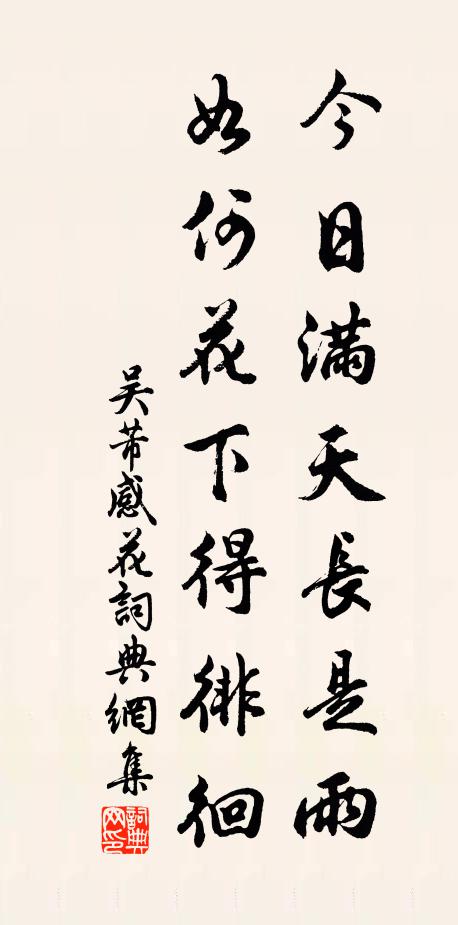 今日滿天長是雨
如何花下得徘徊
吳芾感花詞典網集
詞典
网印